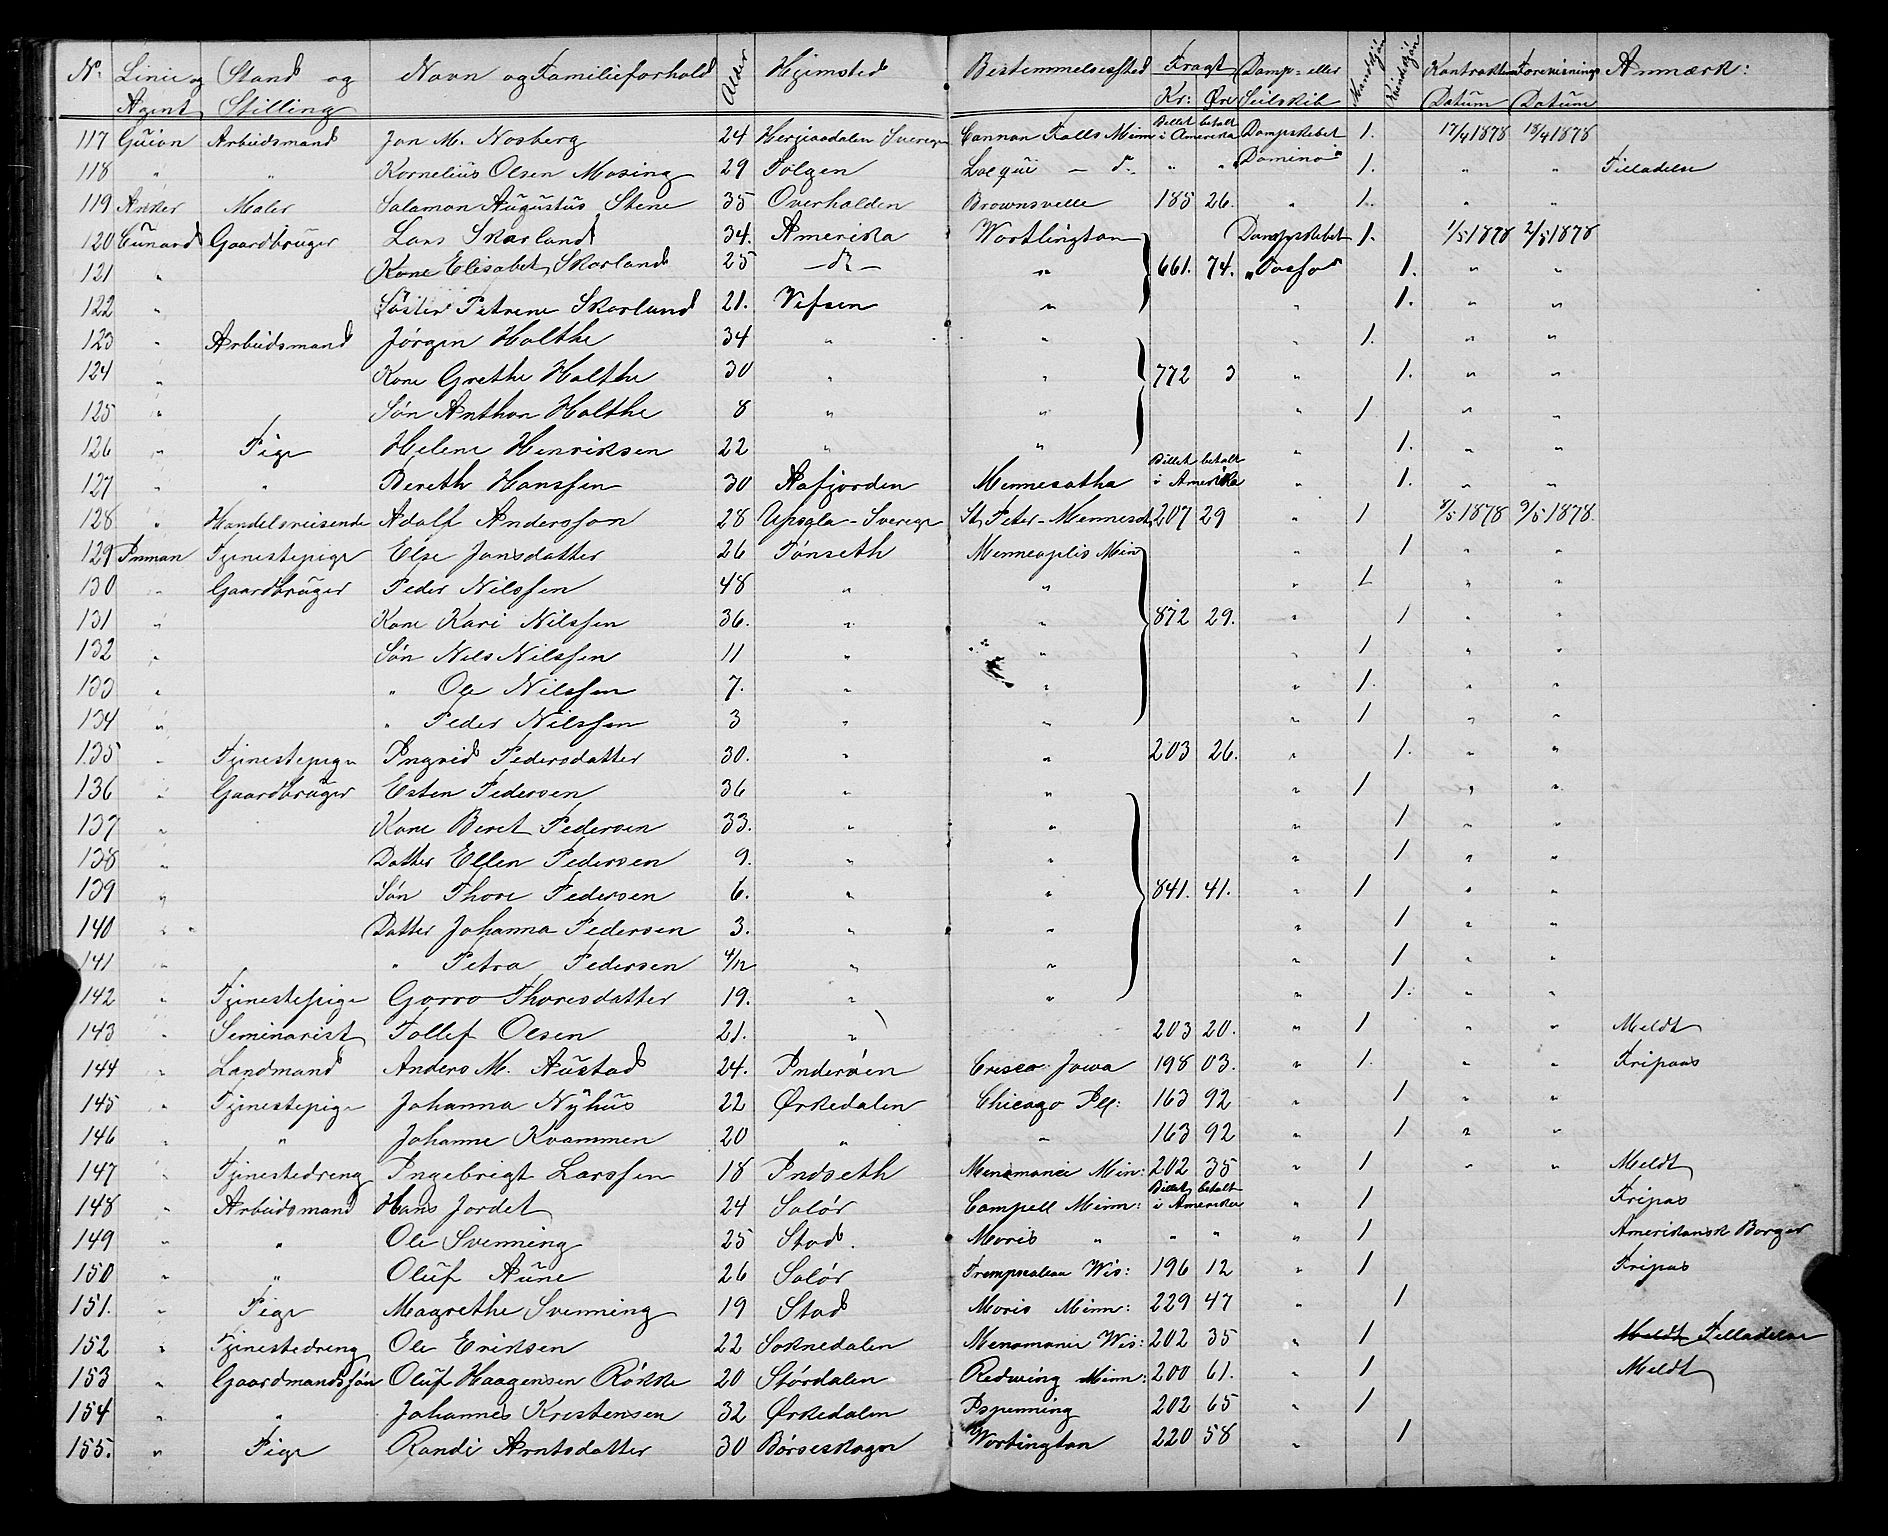 No. Linie og Agent Stand og Stilling Navn og Familieforhold Alder Hjemsted Bestemmelsessted Fragt Kr: Øre Damp- eller Seilskib Mandkjøn Kvindkjøn Kontraktens Datum Forevisnings Datum Anmærk:
117 Guion Arbeidsmand Jon M. Nosberg 24 Herjeaadalen Sverige Cannon Falls Minn Billet betalt i Amerika Dampskibet 1. 17/4 1878 18/4 1878
118 " " Kornelius Olsen Mosing 29 Tolgen Lacqui - do. " " "Domino" 1. " " Tilladelse
119 Anker Maler Salamon Augustus Stene 35 Overhalden Brownsvelle 185 26. " 1. " "
120 Cunard Gaardbruger Lars Skarland 34. Amerika Wortlington Dampskibet 1. 1/5 1878 2/5 1878
121 " Kone Elisabet Skarland 25 - do - " 661. 74. "Tasso" 1. " "
122 " Søster Petrene Skarland 21. Vefsen " " 1. " "
123 " Arbeidsmand Jørgen Holthe 34 " " " 1. " "
124 " Kone Grethe Holthe 30 " " 772 3 " 1. " "
125 " Søn Anthon Holthe 8 " " " 1 " "
126 " Pige Helene Henriksen 22 " " " 1. " "
127 " " Bereth Hanssen 30 Aafjorden Mennesatha Billet betalt i Amerika " 1. " "
128 " Handelsreisende Adolf Andersson 28 Upsala - Sverige St. Peter - Mennesot 207 29 " 1 8/5 1878 9/5 1878.
129 Inman Tjenestepige Else Jonsdatter 26 Tønseth Menneaplis Min " 1 " "
130 " Gaardbruger Peder Nilssen 48 " " " 1 " "
131 " Kone Kari Nilssen 36. " " 872 29. " 1 " "
132 " Søn Nils Nilssen 11 " " " 1 " "
133 " " Ole Nilssen 7. " " " 1. " "
134 " " Peder Nilssen 3 " " " 1 " "
135 " Tjenestepige Ingrid Pedersdatter 30. " " 203 26. " 1. " "
136 " Gaardbruger Esten Pedersen 36 " " " 1 " "
137 " Kone Beret Pedersen 33. " " " 1 " "
138 " Datter Ellen Pedersen 9. " " " 1 " "
139 " Søn Thore Pedersen 6. " " 841. 41. " 1 " "
140 " Datter Johanna Pedersen 3. " " " 1 " "
141 " " Petra Pedersen 4/12 " " " 1 " "
142 " Tjenestepige Gorro Thoresdatter 19. " " " 1. " "
143 " Seminarist Tollef Olsen 21. " 203 20. " 1 " " Meldt
144 " Landmand Anders M. Austad 24. Inderøen Cresco Jowa 198 03. " 1. " " Fripas
145 " Tjenestepige Johanna Nyhus 22 Ørkedalen Chicago Ill: 163 92 " 1 " "
146 " " Johanne Kvammen 20 " " 163 92 " 1 " "
147 " Tjenestedreng Ingebrigt Larssen 18 Indseth Menomonei Min: 202 35 " 1 " " Meldt
148 " Arbeidsmand Hans Jordet 24 Solør Campell Minn: Billet betalt i Amerika " 1 Fripas
149 " " Ole Svenning 25 Stod. Moris " " " " 1 Amerikansk Borger
150 " " Oluf Aune 26 Solør Trempealeau Wis: 196 12 " 1 Fripas
151. " Pige Magrethe Svenning 19 Stod Moris Minn: 229 47 " 1
152 " Tjenestedreng Ole Eriksen 22 Soknedalen Menomonei Wis: 202 35 " 1 Meldt Tilladelse
153 " Gaardmandssøn Oluf Haagensen Røkke 20 Størdalen Redwing Minn: 200 61. " 1 Meldt
154 " " Johannes Kristensen 32 Ørkedalen Ispenning 202 65 " 1
155. " Pige Randi Arntsdatter 30 Børseskogn Wortington 220 58 " 1